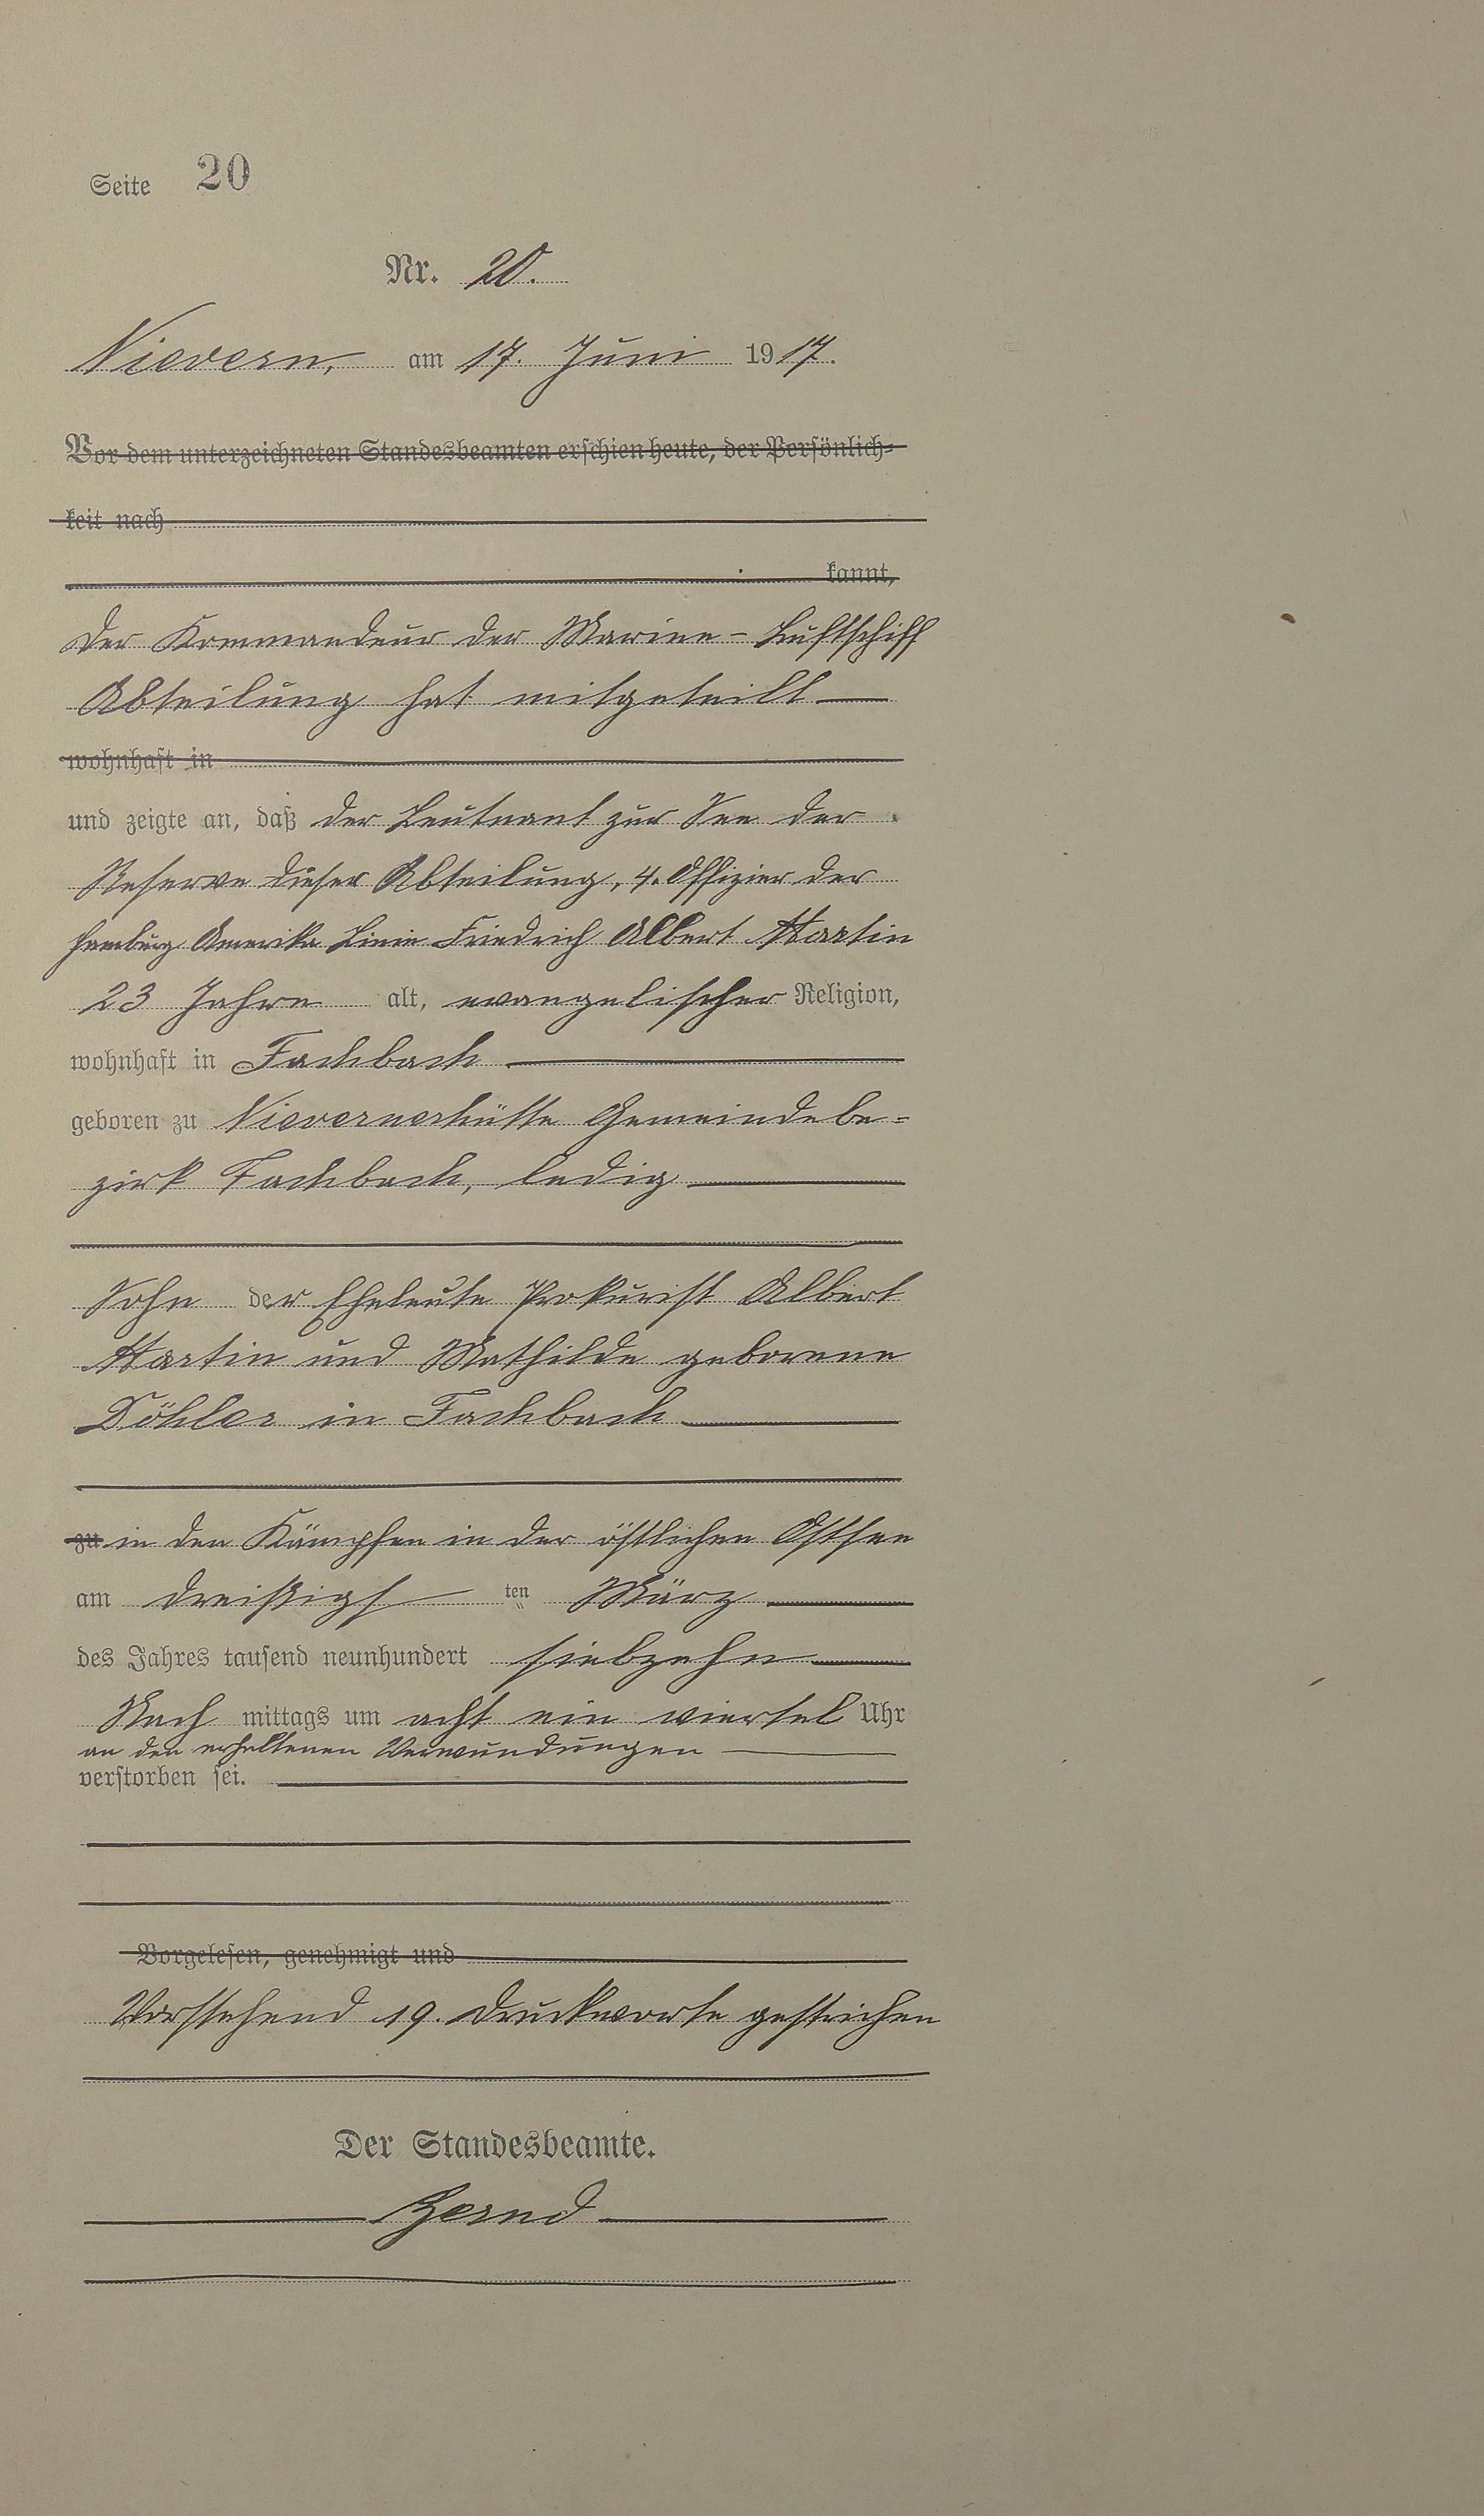 Seite 20
Nr. 20.
Nievern, am 17. Juni 1917.
Vor dem unterzeichneten Standesbeamten erschien heute, der Persönlich-
keit nach
kannt,
der Kommandeur der Marine-Luftschiff
Abteilung hat mitgeteilt
wohnhaft in
und zeigte an, daß der Leutnant zur See der
Reserve dieser Abteilung, 4. Offizier der
Hamburg Amerika Linie Friedrich Albert Martin
23 Jahre alt, evangelischer Religion,
wohnhaft in Fachbach
geboren zu Nievernerhütte Gemeindebe=
zirk Fachbach, ledig
Sohn der Eheleute Prokurist Albert
Martin und Mathilde geborene
Döhler in Fachbach
zu in den Kämpfen in der östlichen Ostsee
am dreißigs ten März
des Jahres tausend neunhundert siebzehn
Nach mittags um acht ein viertel Uhr
an den erhaltenen Verwundungen
verstorben sei.
Vorgelesen, genehmigt und
Vorstehend 19. Druckworte gestrichen
Der Standesbeamte.